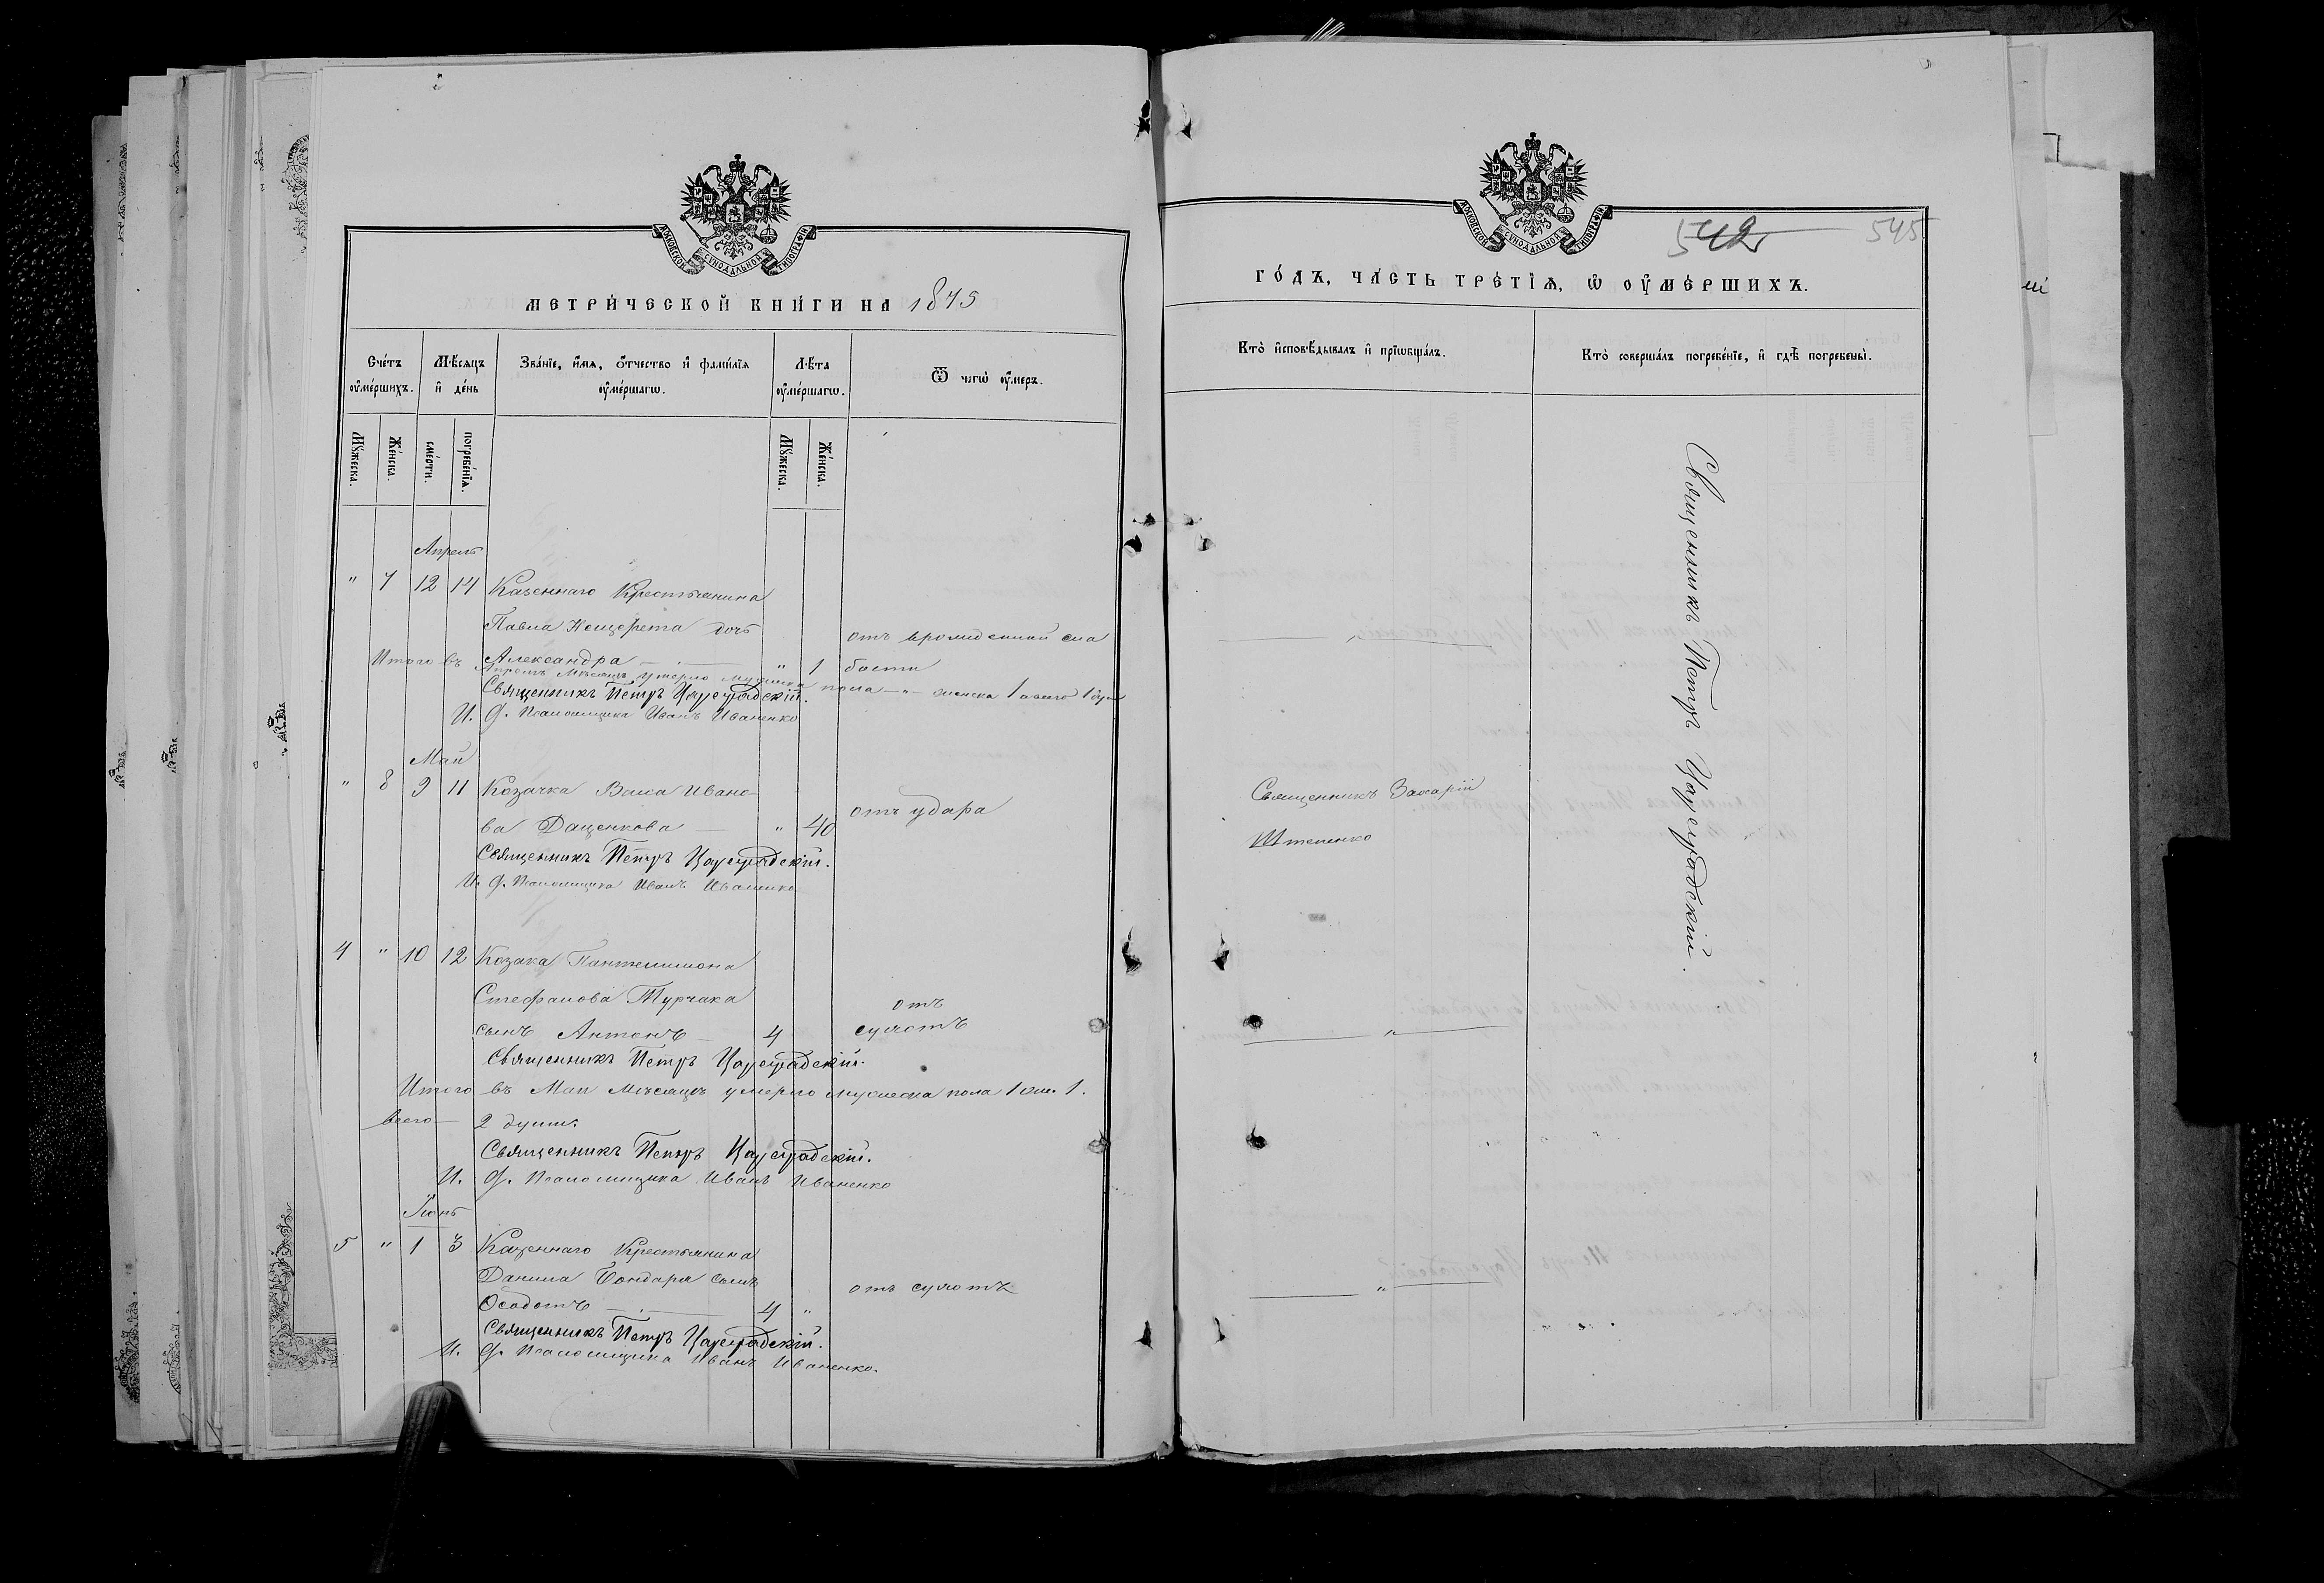 МОСКОВСКОЙ СѴНОДАЛЬНОЙ ТИПОГРАФІИ
МЕТРИ́ЧЕСКОЙ КНИ́ГИ НА 1875
Сче́тъ оу҆ме́ршихъ.
Мѣ́сяцъ и҆ де́нь
Зва́нїе, и҆́мѧ, ѻ҆́тчество и҆ фами́лїѧ оу҆ме́ршагѡ.
Лѣ́та оу҆ме́ршагѡ.
Ѿ чегѡ̀ оу҆́меръ.
Мꙋ́жеска.
Же́нска.
сме́рти.
погребе́нїѧ.
Мꙋ́жеска.
Же́нска.
Апрель
" 7 12 14 Казеннаго Крестьянина
Павла дочь
отъ врожденной сла
Александра " 1 бости
Итого въ Апрелѣ Мѣсяцѣ умерло мужеска пола — " — женска 1 а всего 1 душ
Священникъ Петръ Цареградскій.
И. д. Псаломщика Иванъ Иваненко
Май
" 8 9 11 Козачка Ивано-
ва Даценкова — " 40 отъ удара
Священникъ Петръ Цареградскій.
И. д. Псаломщика Иванъ Иваненко
4 " 10 12 Козака Пантелимона
Стефанова Турчака
отъ
сынъ Антонъ 4 сухотъ
Священникъ Петръ Цареградскій.
Итого въ Маи Мѣсяцѣ умерло мужеска пола 1 жен. 1.
всего — 2 души.
Священникъ Петръ Цареградскій.
И. д. Псаломщика Иванъ Иваненко
Іюнь
5 " 1 3 Казеннаго Крестьянина
Данила Бондаря сынъ
отъ сухотъ
Ѳеодотъ — 4 "
Священникъ Петръ Цареградскій.
И. д. Псаломщика Иванъ Иваненко.
МОСКОВСКОЙ СѴНОДАЛЬНОЙ ТИПОГРАФІИ
542 545
ГО́ДЪ, ЧА́СТЬ ТРЕ́ТЇѦ, Ѡ҆ ОУ҆МЕ́РШИХЪ.
Кто̀ и҆сповѣ́дывалъ и҆ прїѡбща́лъ.
Кто̀ соверша́лъ погребе́нїе, и҆ гдѣ̀ погребены̀.
"
Священникъ Захарій
"
"
Священникъ Петръ Цареградскій.